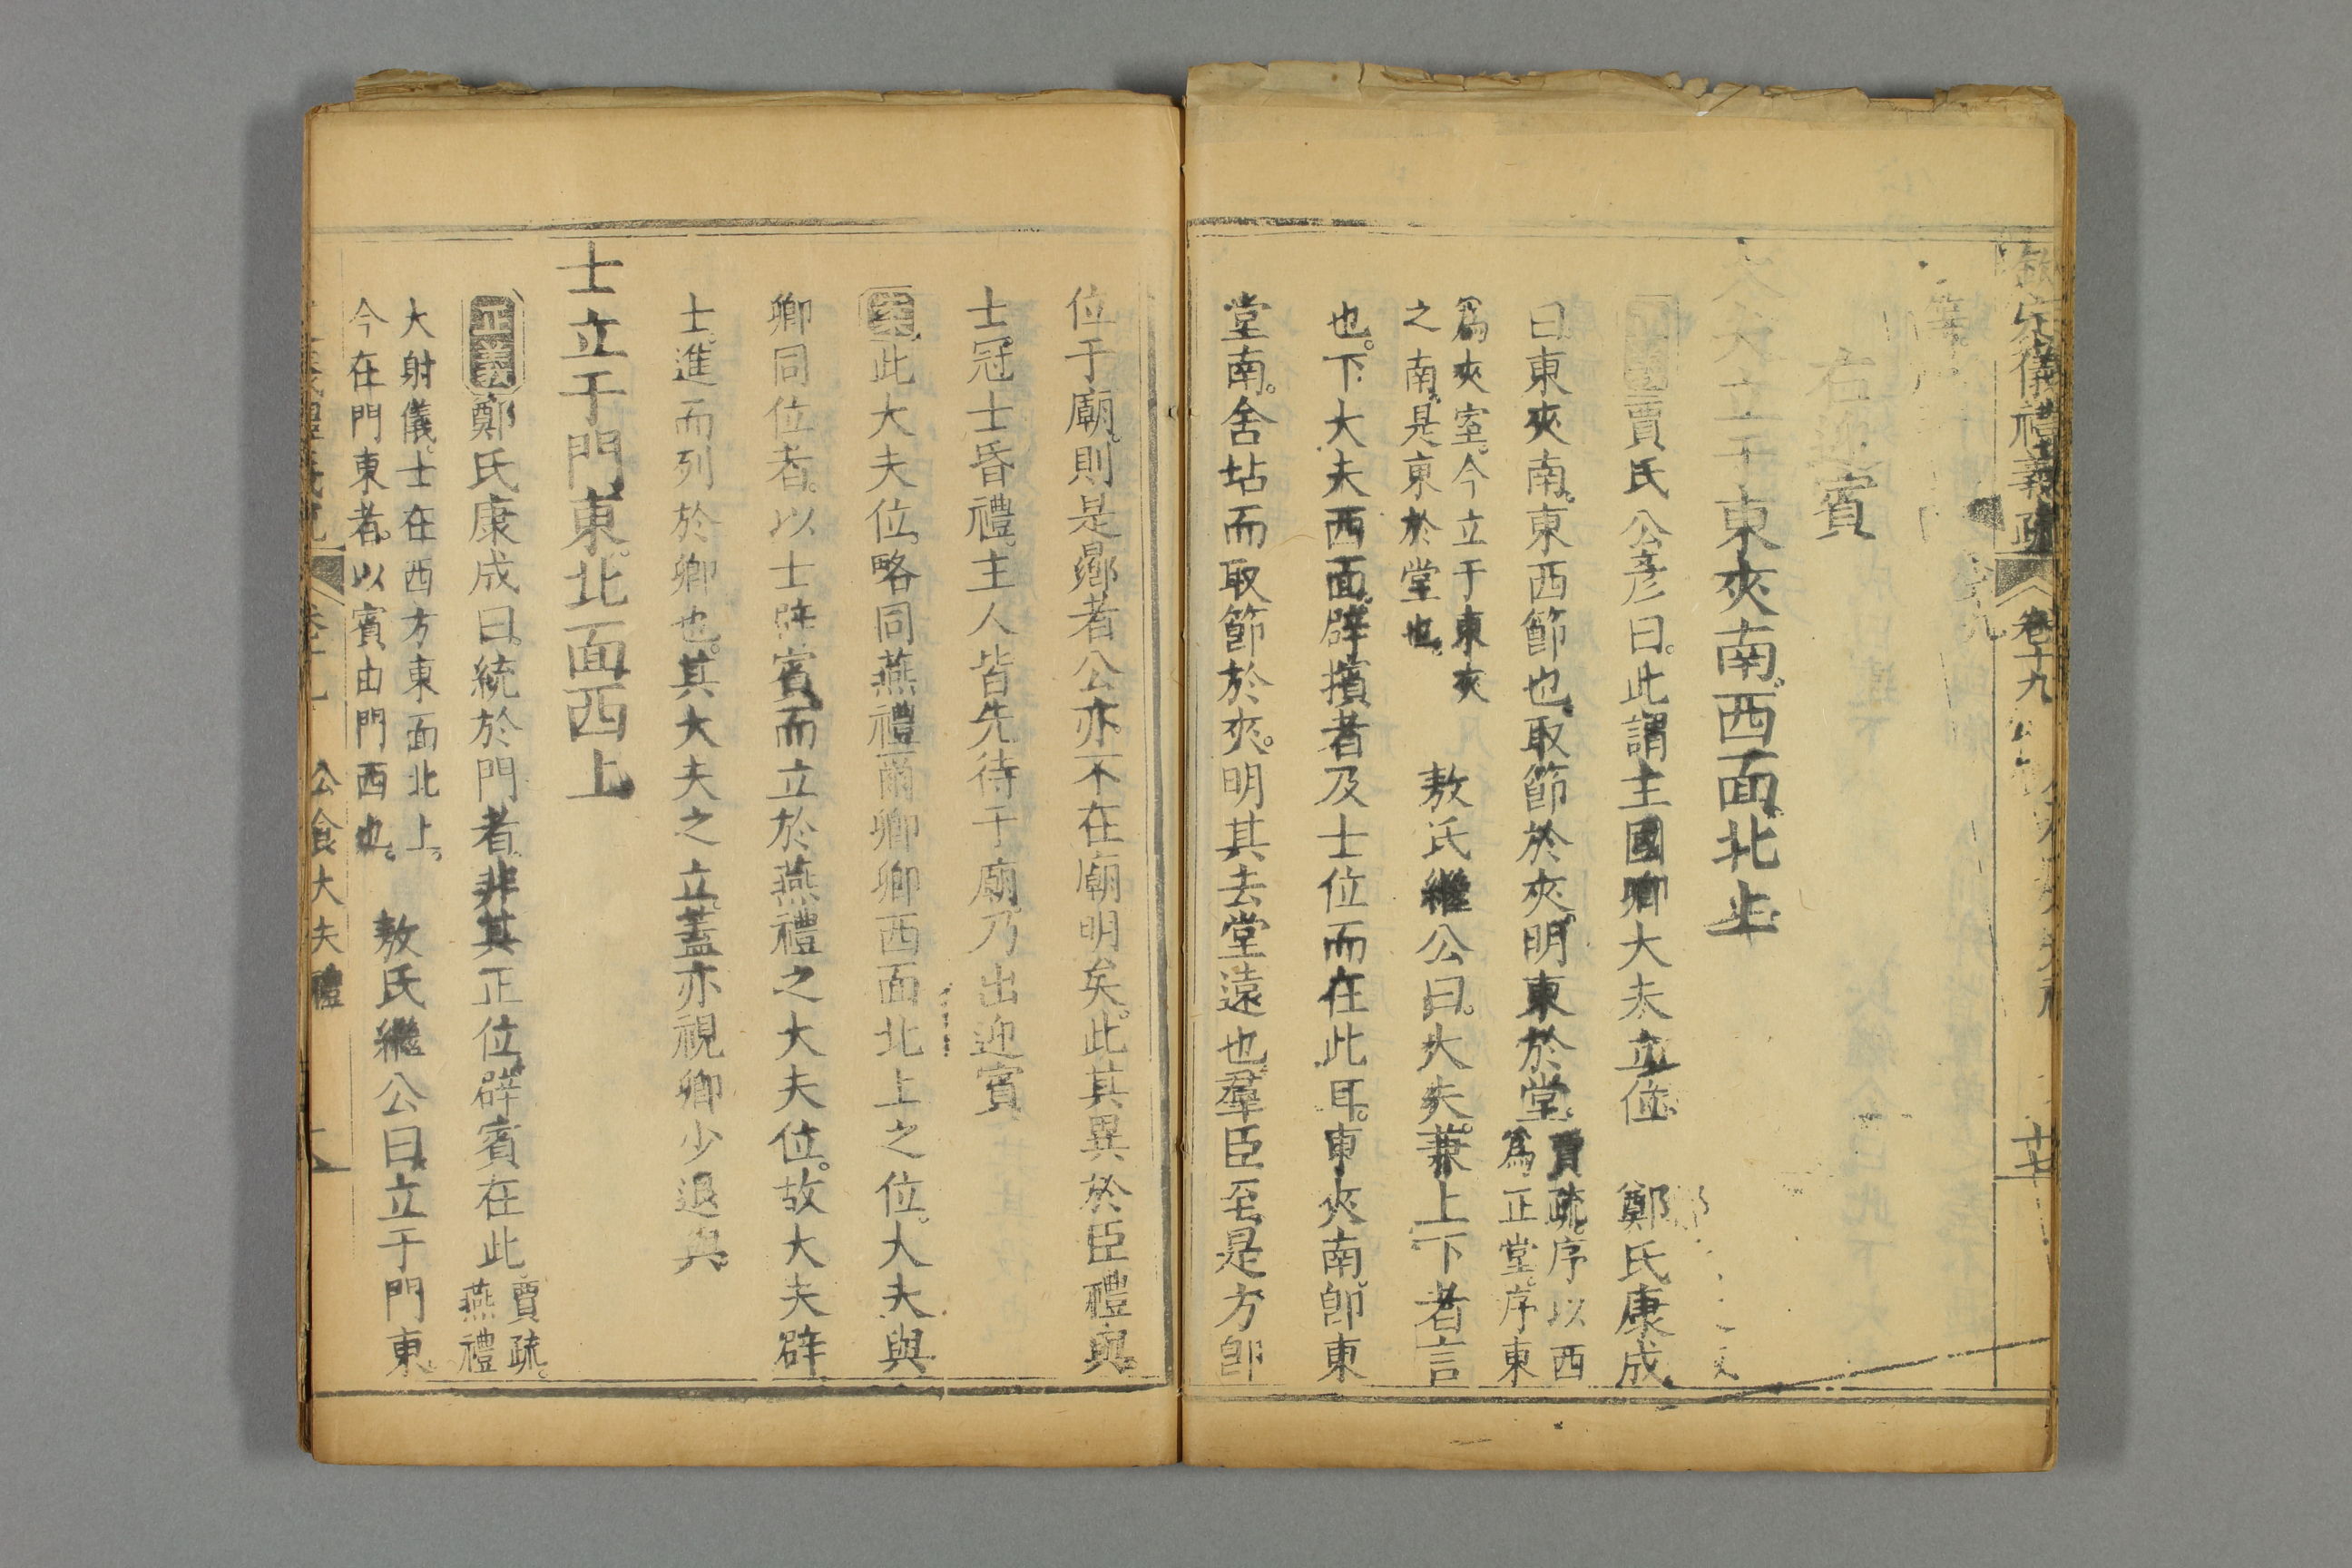 欽定儀禮義疏 卷十九 十七
等
右迎賓
大夫立于東夾南西面北上
正義賈氏公彦曰。此謂主國卿大夫立位 鄭氏康成
曰東夾南。東西節也。取節於夾。明東於堂。賈疏。序以西
爲正堂。序東
爲夾室。今立于東夾
之南。是東於堂也。 敖氏繼公曰。大夫。兼上下者言
也。下大夫西面。辟擯者及士位而在此耳。東夾南。卽東
堂南。舍坫而取節於夾。明其去堂遠也。羣臣至是方卽
位于廟。則是曏者公亦不在廟明矣。此其異於臣禮與。
士冠士昏禮。主人皆先待于廟。乃出迎賓
案此大夫位。略同燕禮爾卿卿西面北上之位。大夫與
卿同位者。以士辟賓。而立於燕禮之大夫位。故大夫辟
士。進而列於卿也。其大夫之立。蓋亦視卿少退與
士立于門東。北面西上
正義鄭氏康成曰。統於門者。非其正位。辟賓在此。賈疏。
燕禮
大射儀。士在西方東面北上。
今在門東者。以賓由門西也。 敖氏繼公曰立于門東。
公食大夫禮